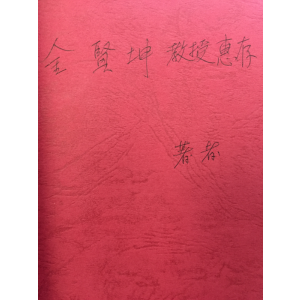 金賢坤 教授惠存
著者